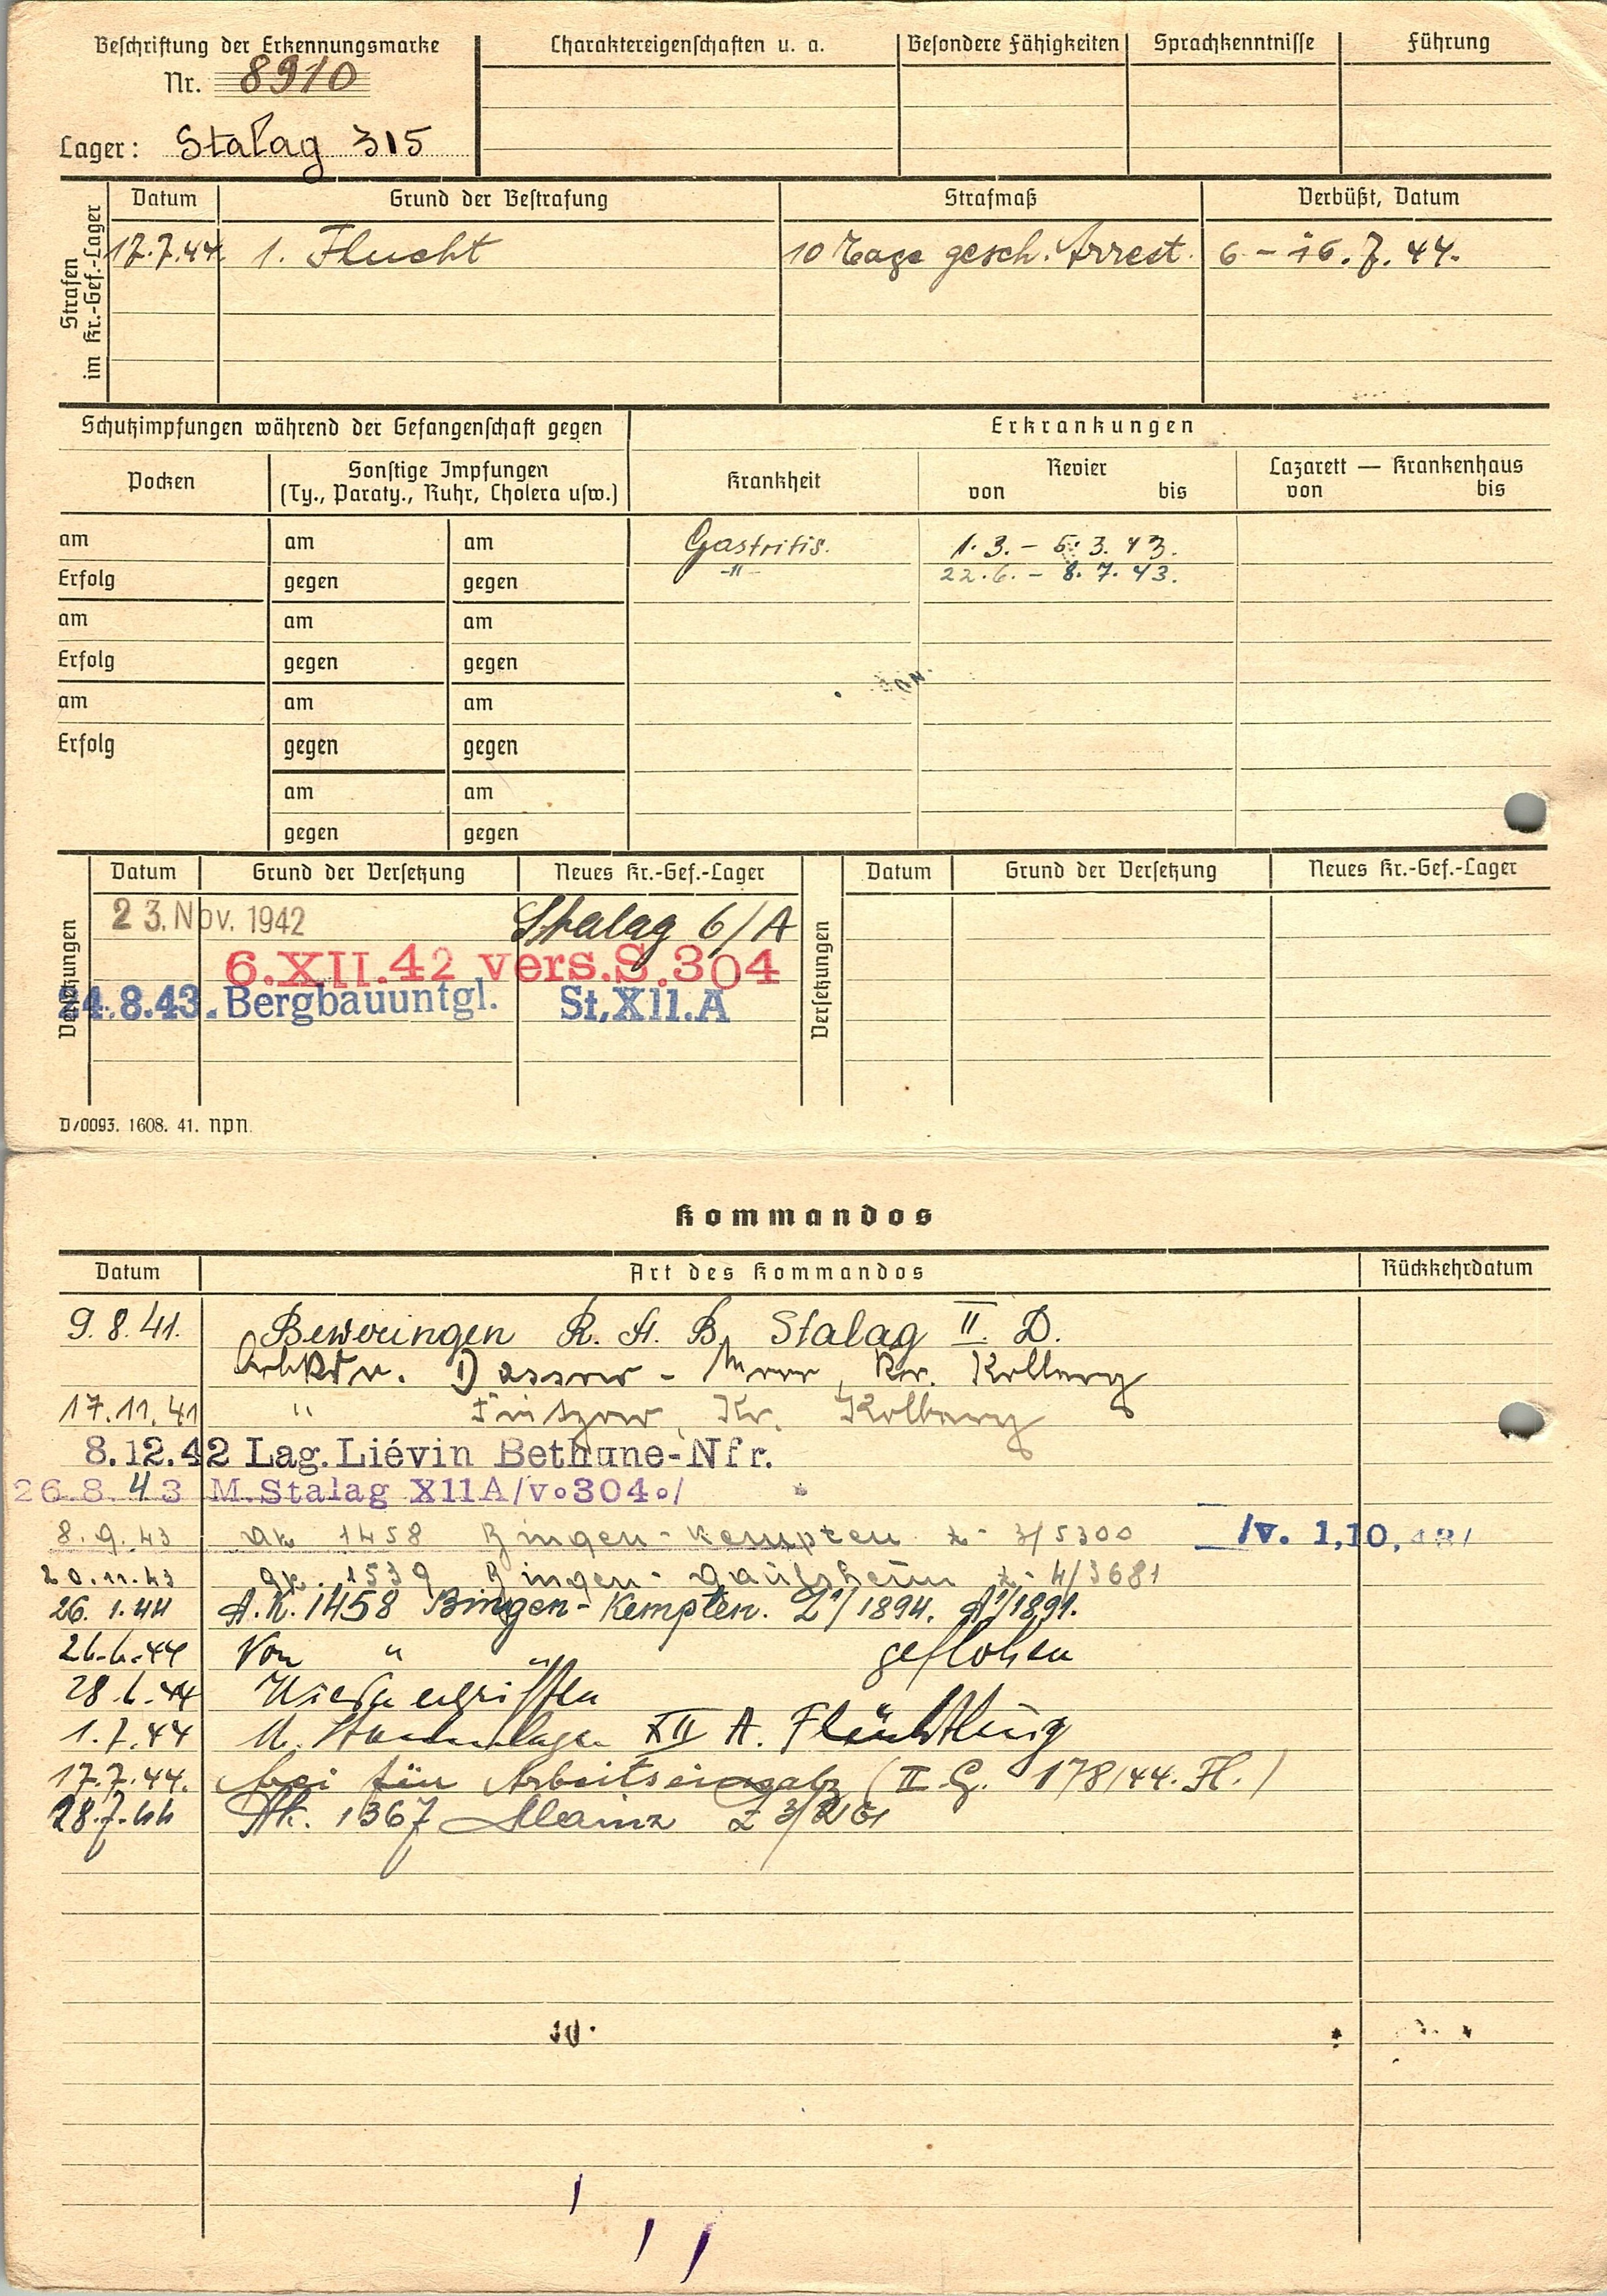 Beschriftung der Erkennungsmarke
Nr. 8910
Lager: Stalag 315
Charaktereigenschaften u. a.
Besondere Fähigkeiten
Sprachkenntnisse
Führung
Strafen im Kr.-Gef.-Lager
Datum Grund der Bestrafung Strafmaß Verbüßt, Datum
17.7.44. 1. Flucht 10 Tage gesch. Arrest. 6 - 16. 7. 44.
Schutzimpfungen während der Gefangenschaft gegen
Erkrankungen
Pocken
Sonstige Impfungen
(Ty., Paraty., Ruhr, Cholera usw.)
Krankheit
Revier
von bis
Lazarett — Krankenhaus
von bis
am am am Gastritis. 1. 3. - 5. 3. 43.
Erfolg gegen gegen -"- 22. 6. - 8. 7. 43.
am am am
Erfolg gegen gegen
am am am
Erfolg gegen gegen
am am
gegen gegen
Versetzungen
Datum Grund der Versetzung Neues Kr.-Gef.-Lager
23. Nov. 1942 Stalag 6/A
6.XII.42 vers.S.304
24.8.43. Bergbauuntgl. St,X11.A
Versetzungen
Datum Grund der Versetzung Neues Kr.-Gef.-Lager
D/0093. 1608. 41. NPN.
Kommandos
Datum Art des Kommandos Rückkehrdatum
9. 8. 41. Beweringen R. A. B. Stalag II. D.
Dassow - Kr. Kolberg
17. 11. 41 " Fritzow, Kr. Kolberg
8.12.42 Lag. Liévin Bethune-Nfr.
26.8.43 M. Stalag X11A/v.304./
8. 9. 43 ak 1458 Bingen-Kempten z. 3/5300 /v. 1,10,43/
20. 11. 43 ak. 1539 Bingen-Gaulsheim z. 4/3681
26. 1. 44 A.K. 1458 Bingen-Kempten. 1894. 1891.
26.6.44 Von " " geflohen
28.6.44 Wieder ergriffen
1.7.44 XII A. Flüchtling
17.7.44. frei für Arbeitseinsatz (II G. 178/44. Fl.)
28.7.44 Ak. 1367 Mainz